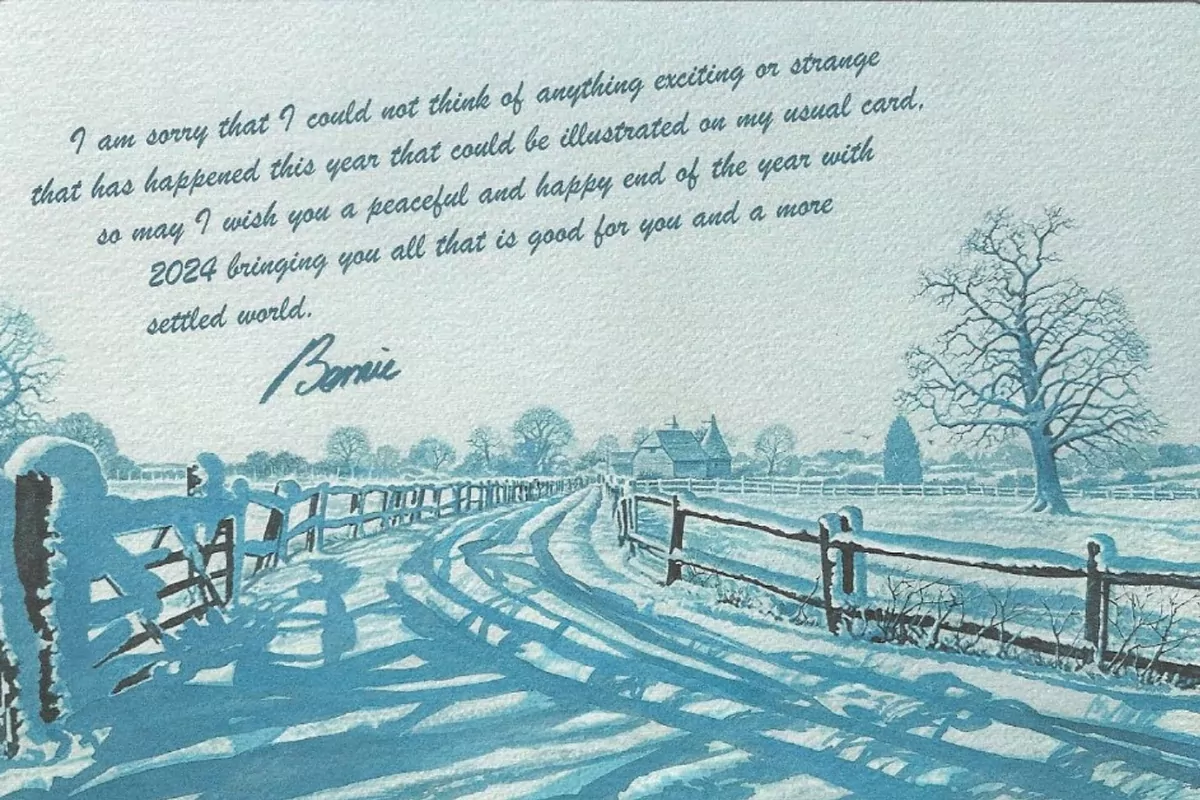 I am sorry that I could not think of anything exciting or strange
that has happened this year that could be illustrated on my usual card,
so may I wish you a peaceful and happy end of the year with
2024 bringing you all that is good for you and a more
settled world.
Bernie